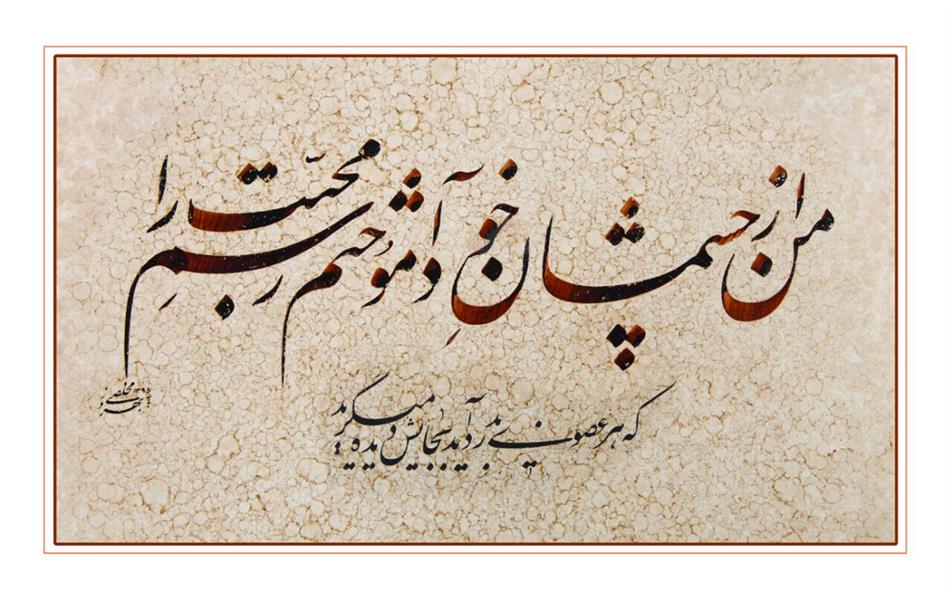 من از چشمان خود آموختم رسم محبت را
که هر عضوی بدرد آید بجایش دیده میگرید